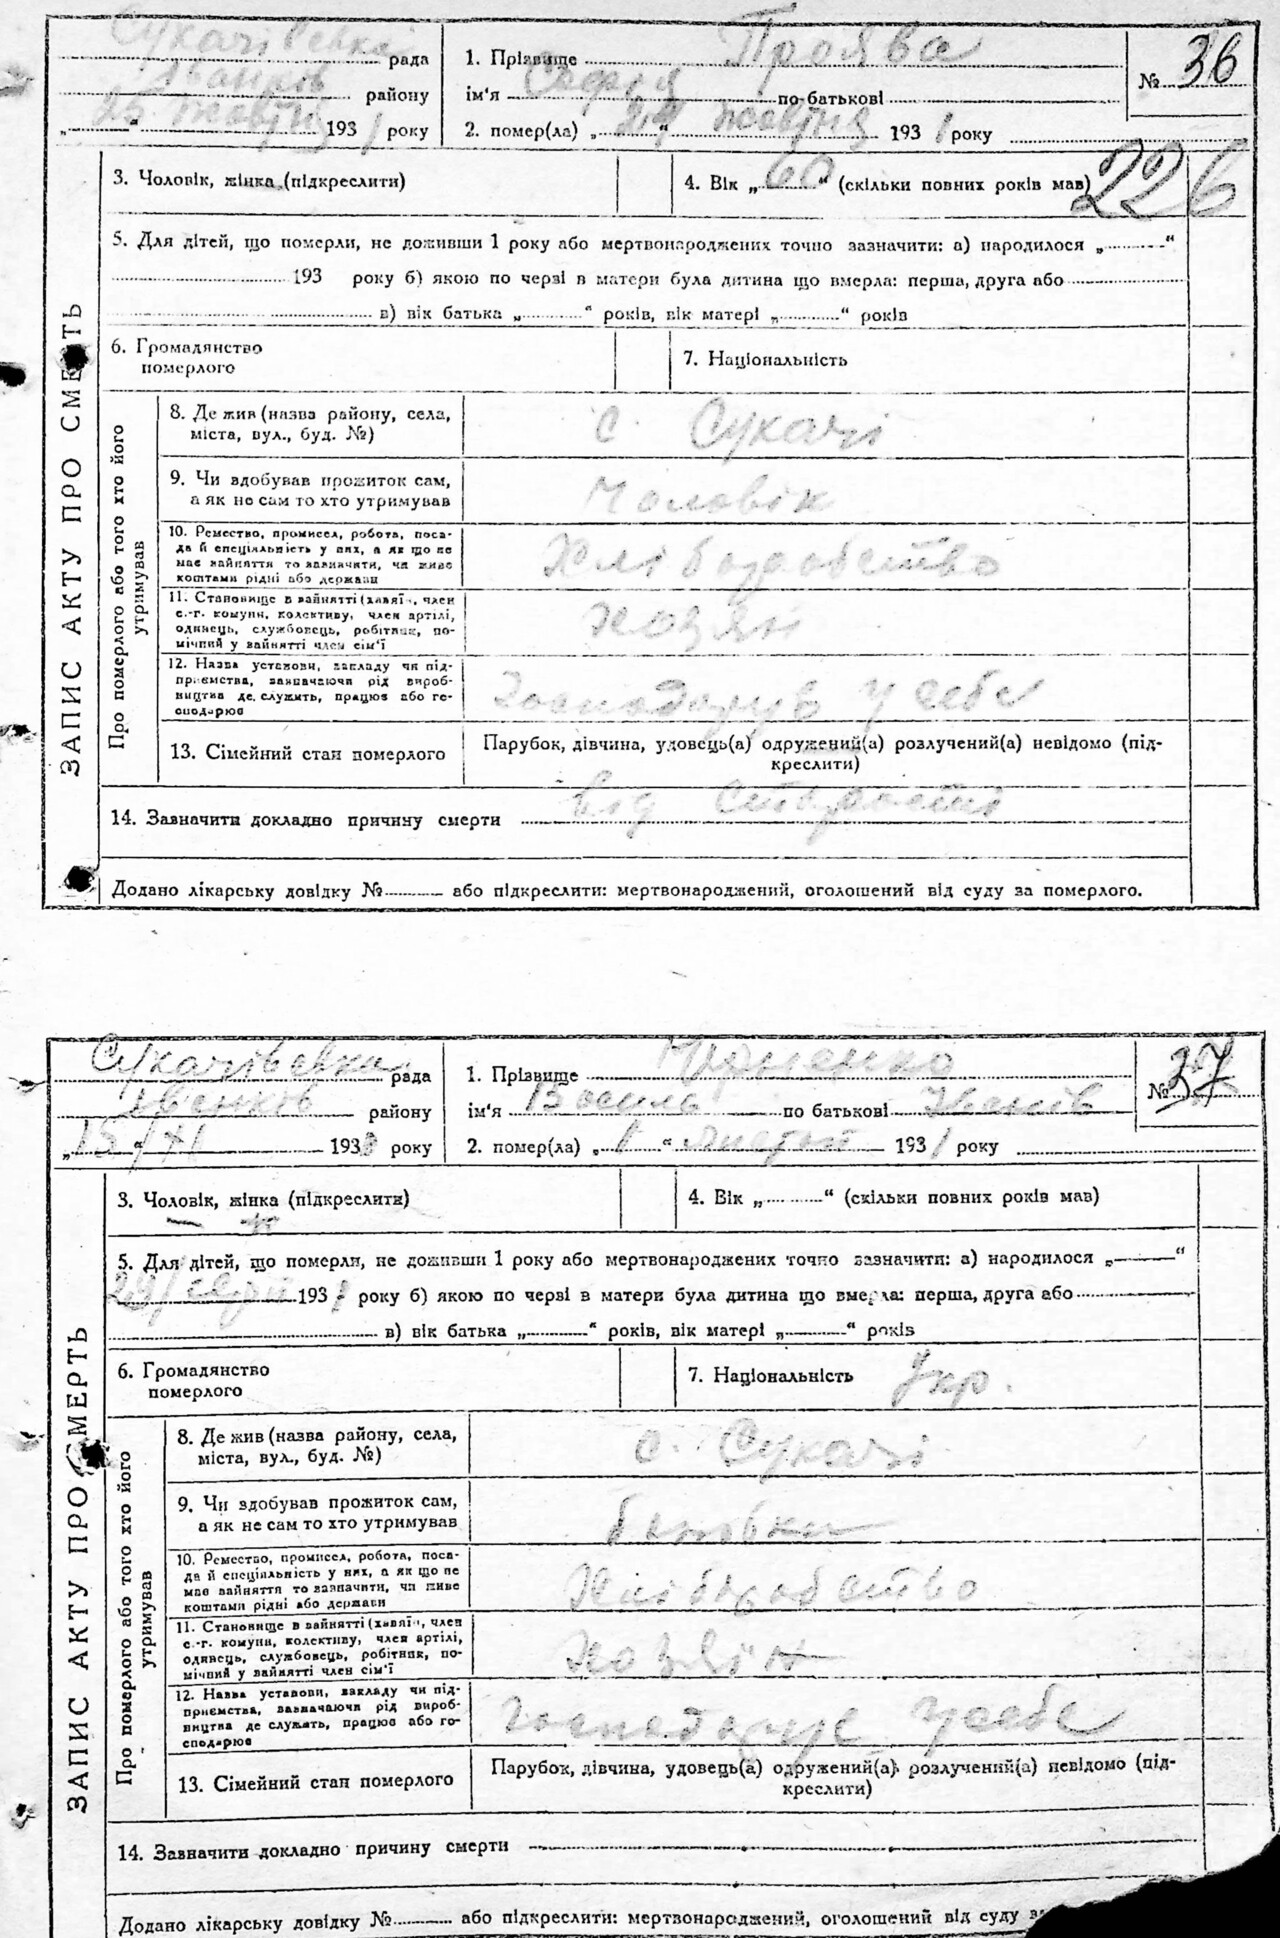 Сукачівська рада
Іванків району
„25 “ жовтня 1931 року
1. Прізвище Проява
ім'я Софія по-батькові
2. помер(ла) „24“ жовтня 1931 року
№ 36
ЗАПИС АКТУ ПРО СМЕРТЬ
3. Чоловік, жінка (підкреслити)
4. Вік „60“ (скільки повних років мав)
226
5. Для дітей, що померли, не доживши 1 року або мертвонароджених точно зазначити: а) народилося „ “
193 року б) якою по черзі в матери була дитина що вмерла: перша, друга або
в) вік батька „ “ років, вік матері „ “ років
6. Громадянство
померлого
7. Національність
Про померлого або того хто його
утримував
8. Де жив (назва району, села,
міста, вул., буд. №)
с. Сукачі
9. Чи здобував прожиток сам,
а як не сам то хто утримував
Чоловік
10. Ремество, промисел, робота, поса-
да й спеціяльність у них, а як що не
має зайняття то зазначити, чи живе
коштами рідні або держави
Хліборобство
11. Становище в зайнятті (хазяїн, член
с.-г. комуни, колективу, член артілі,
одинець, службовець, робітник, по-
мічний у зайнятті член сім'ї
Хозяін
12. Назва установи, закладу чи під-
приємства, зазначаючи рід вироб-
ництва де служить, працює або го-
сподарює
Господарув у себе
13. Сімейний стан померлого
Парубок, дівчина, удовець(а) одружений(а) розлучений(а) невідомо (під-
креслити)
14. Зазначити докладно причину смерти від старости
Додано лікарську довідку № або підкреслити: мертвонароджений, оголошений від суду за померлого.
Сукачівська рада
Іванків району
„15/XI 193 року
1. Прізвище
ім'я Василь по батькові
2. помер(ла) „1“ 1931 року
№ 37
ЗАПИС АКТУ ПРО СМЕРТЬ
3. Чоловік, жінка (підкреслити)
4. Вік „ “ (скільки повних років мав)
5. Для дітей, що померли, не доживши 1 року або мертвонароджених точно зазначити: а) народилося „ “
29/ 193 року б) якою по черзі в матери була дитина що вмерла: перша, друга або
в) вік батька „ “ років, вік матері „ “ років
6. Громадянство
померлого
7. Національність Укр.
Про померлого або того хто його
утримував
8. Де жив (назва району, села,
міста, вул., буд. №)
с. Сукачі
9. Чи здобував прожиток сам,
а як не сам то хто утримував
батьки
10. Ремество, промисел, робота, поса-
да й спеціяльність у них, а як що не
має зайняття то зазначити, чи живе
коштами рідні або держави
Хліборобство
11. Становище в зайнятті (хазяїн, член
с.-г. комуни, колективу, член артілі,
одинець, службовець, робітник, по-
мічний у зайнятті член сім'ї
Хозяін
12. Назва установи, закладу чи під-
приємства, зазначаючи рід вироб-
ництва де служить, працює або го-
сподарює
Господарує у себе
13. Сімейний стан померлого
Парубок, дівчина, удовець(а) одружений(а) розлучений(а) невідомо (під-
креслити)
14. Зазначити докладно причину смерти
Додано лікарську довідку № або підкреслити: мертвонароджений, оголошений від суду